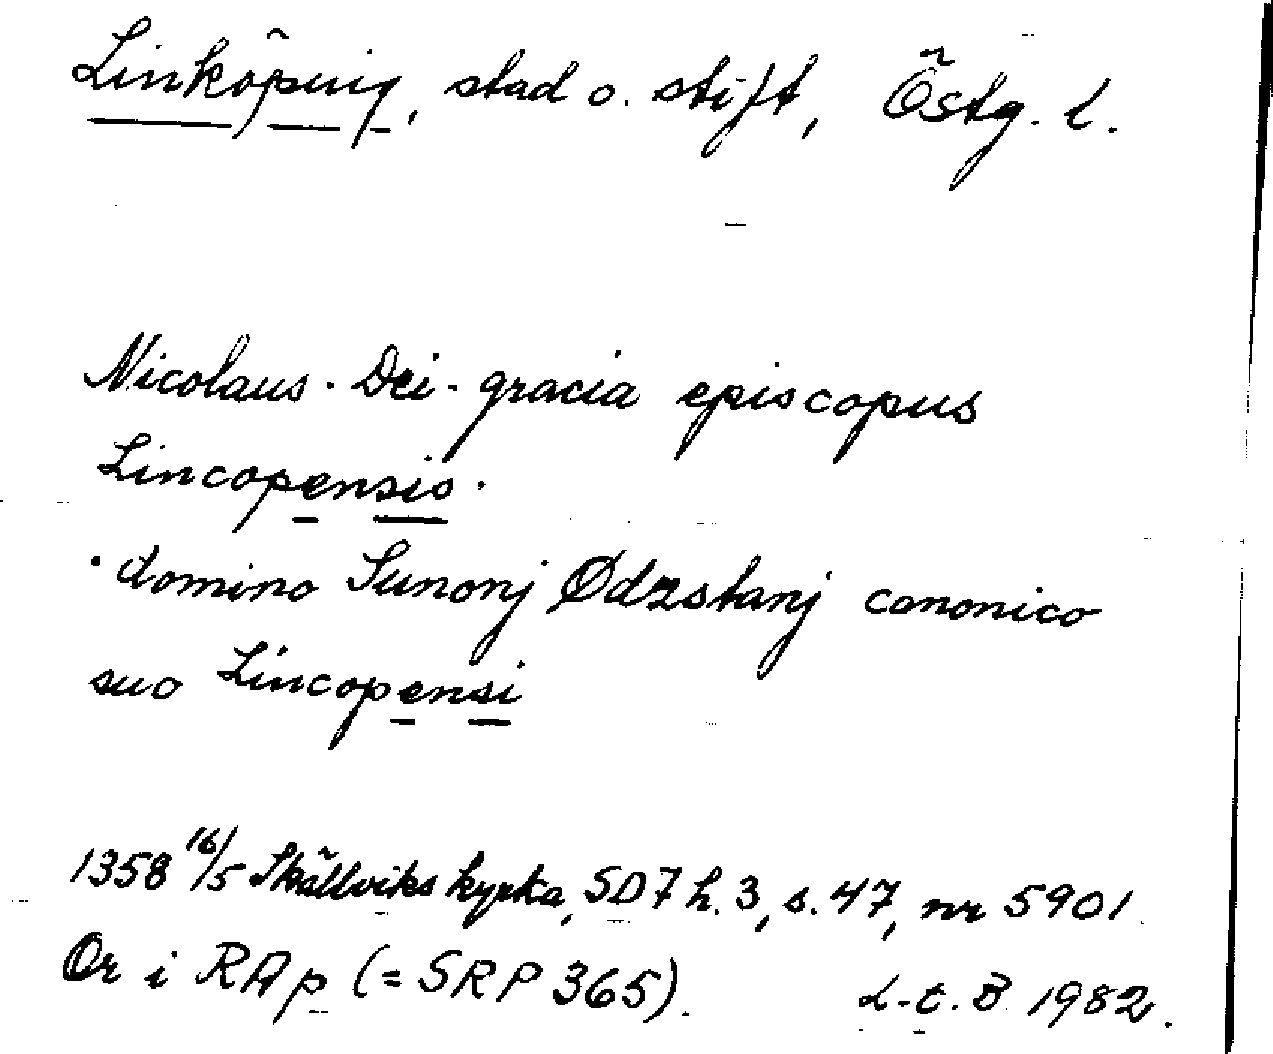 Linköping, stad o. stift, Östg. l.
Nicolaus · Dei · gracia episcopus
Lincopensis ·
· domino Sunonj Ødzstanj canonico
suo Lincopensi
1358 16/5 Skällviks kyrka, SD 7 h. 3, s. 47, nr 5901.
Or i RAp (= SRP 365). L-t. B 1982.